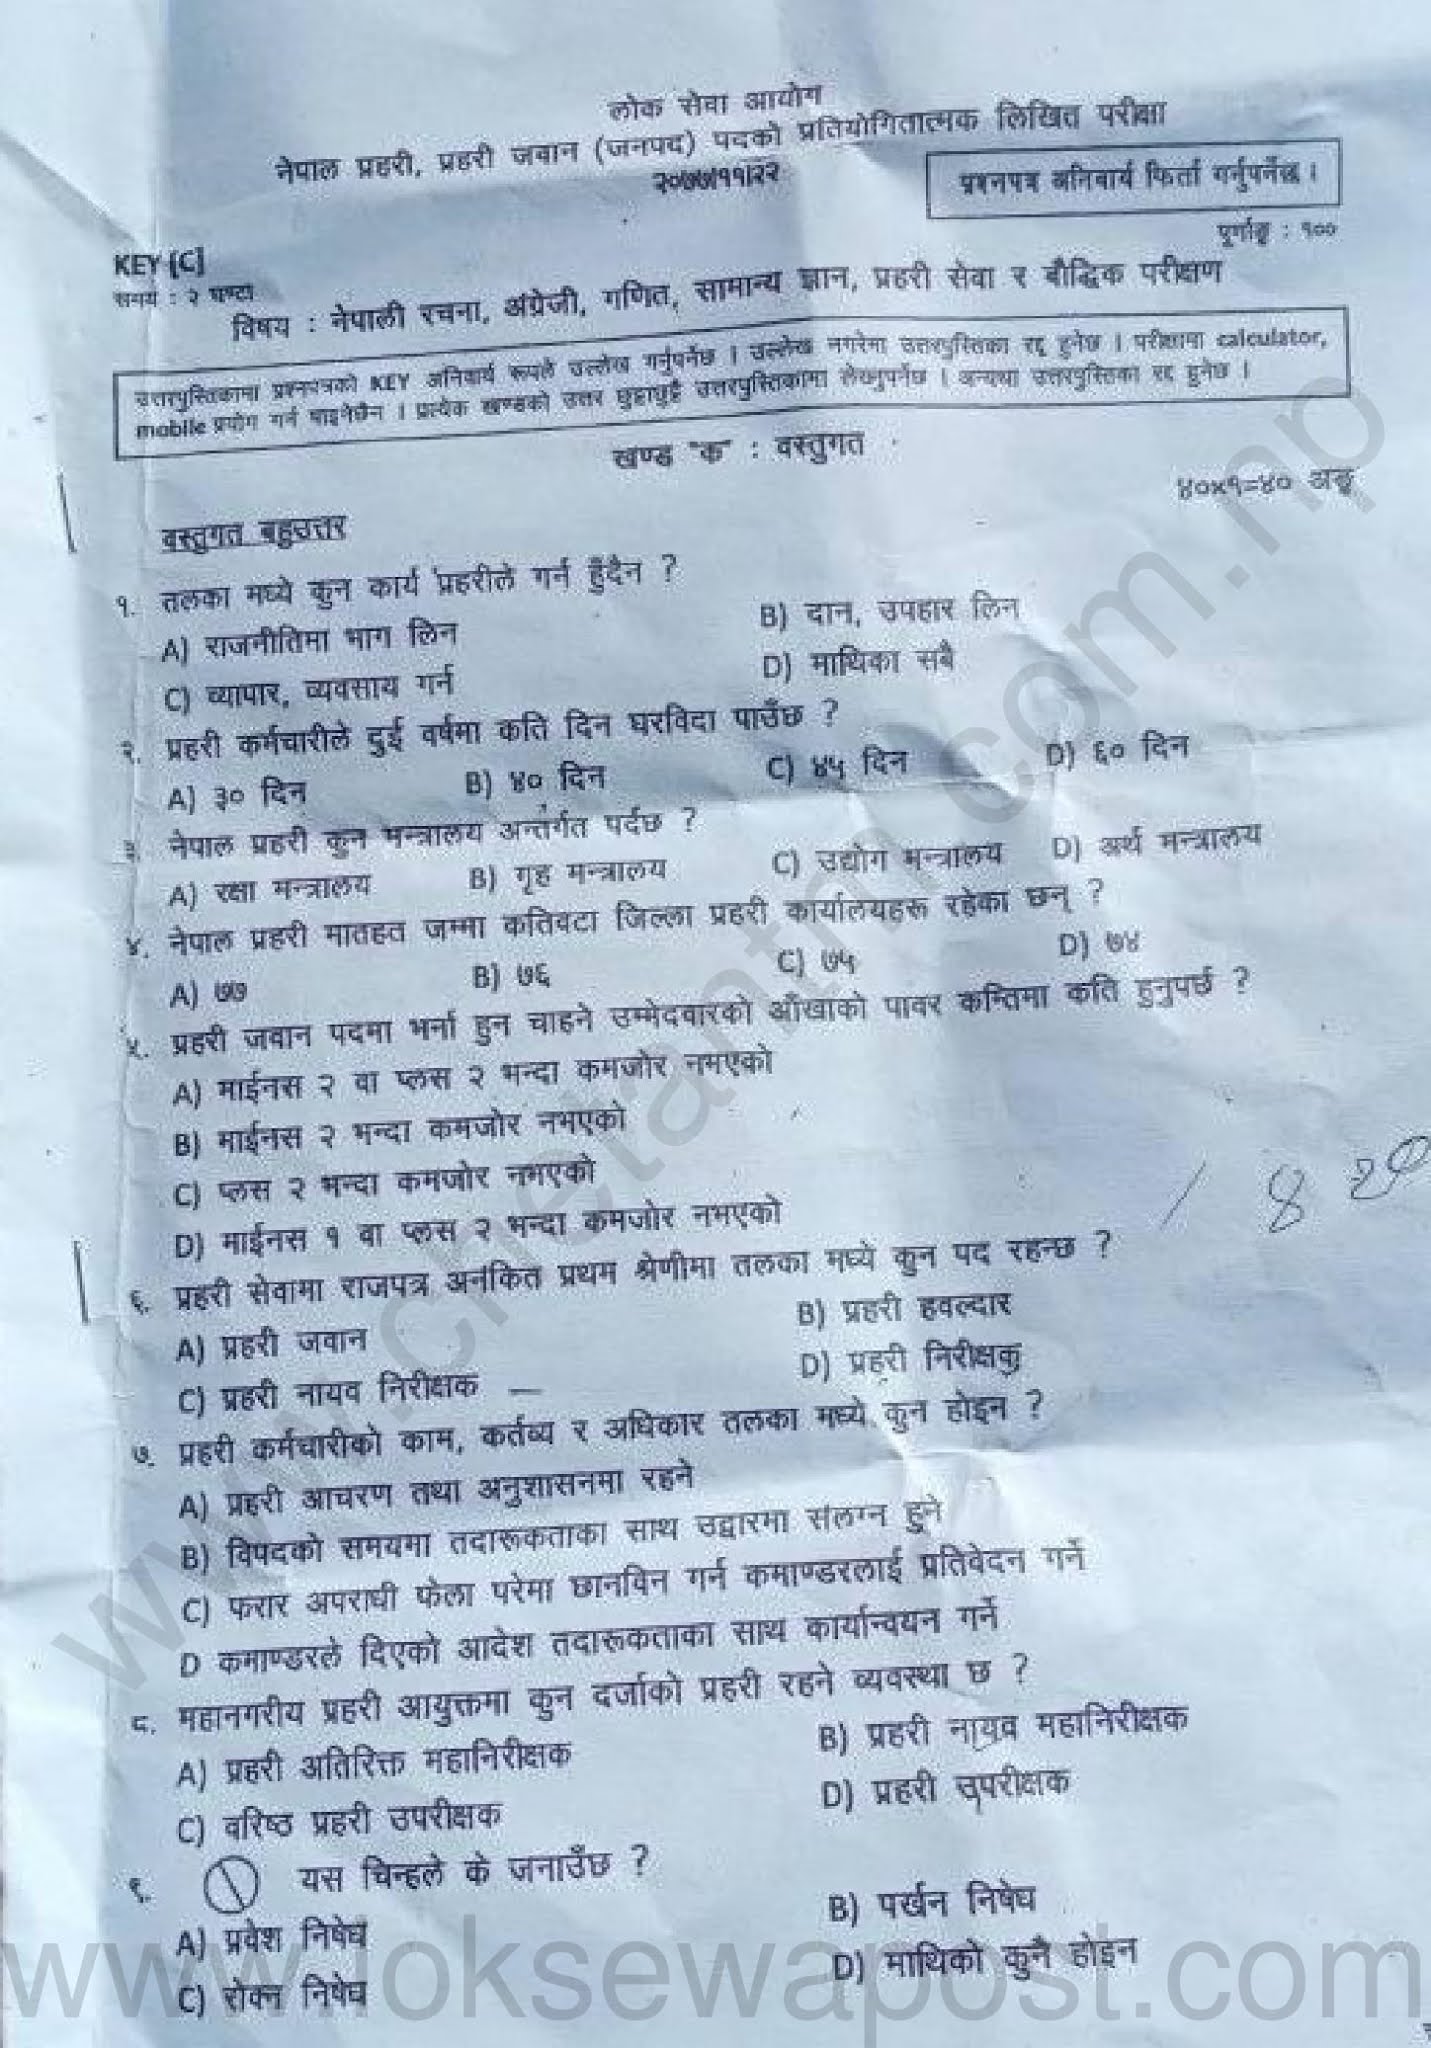 लोक सेवा आयोग
नेपाल प्रहरी, प्रहरी जवान (जनपद) पदको प्रतियोगितात्मक लिखित परीक्षा
२०७७।११।२२
प्रश्नपत्र अनिवार्य फिर्ता गर्नुपर्नेछ ।
पूर्णाङ्क : १००
KEY [C]
समय : २ घण्टा
विषय : नेपाली रचना, अंग्रेजी, गणित, सामान्य ज्ञान, प्रहरी सेवा र बौद्धिक परीक्षण
उत्तरपुस्तिकामा प्रश्नपत्रको KEY अनिवार्य रूपले उल्लेख गर्नुपर्नेछ । उल्लेख नगरेमा उत्तरपुस्तिका रद्द हुनेछ । परीक्षामा calculator,
mobile प्रयोग गर्न पाइनेछैन । प्रत्येक खण्डको उत्तर छुट्टाछुट्टै उत्तरपुस्तिकामा लेख्नुपर्नेछ । अन्यथा उत्तरपुस्तिका रद्द हुनेछ ।
खण्ड "क" : वस्तुगत
४०x१=४० अङ्क
वस्तुगत बहुउत्तर
१. तलका मध्ये कुन कार्य प्रहरीले गर्न हुँदैन ?
A) राजनीतिमा भाग लिन B) दान, उपहार लिन
C) व्यापार, व्यवसाय गर्न D) माथिका सबै
२. प्रहरी कर्मचारीले दुई वर्षमा कति दिन घरविदा पाउँछ ?
A) ३० दिन B) ४० दिन C) ४५ दिन D) ६० दिन
३. नेपाल प्रहरी कुन मन्त्रालय अन्तर्गत पर्दछ ?
A) रक्षा मन्त्रालय B) गृह मन्त्रालय C) उद्योग मन्त्रालय D) अर्थ मन्त्रालय
४. नेपाल प्रहरी मातहत जम्मा कतिवटा जिल्ला प्रहरी कार्यालयहरू रहेका छन् ?
A) ७७ B) ७६ C) ७५ D) ७४
५. प्रहरी जवान पदमा भर्ना हुन चाहने उम्मेदवारको आँखाको पावर कम्तिमा कति हुनुपर्छ ?
A) माईनस २ वा प्लस २ भन्दा कमजोर नभएको
B) माईनस २ भन्दा कमजोर नभएको
C) प्लस २ भन्दा कमजोर नभएको
D) माईनस १ वा प्लस २ भन्दा कमजोर नभएको
६. प्रहरी सेवामा राजपत्र अनंकित प्रथम श्रेणीमा तलका मध्ये कुन पद रहन्छ ?
A) प्रहरी जवान B) प्रहरी हवल्दार
C) प्रहरी नायव निरीक्षक D) प्रहरी निरीक्षक
७. प्रहरी कर्मचारीको काम, कर्तव्य र अधिकार तलका मध्ये कुन होइन ?
A) प्रहरी आचरण तथा अनुशासनमा रहने
B) विपदको समयमा तदारूकताका साथ उद्वारमा संलग्न हुने
C) फरार अपराधी फेला परेमा छानविन गर्न कमाण्डरलाई प्रतिवेदन गर्ने
D कमाण्डरले दिएको आदेश तदारूकताका साथ कार्यान्वयन गर्ने
८. महानगरीय प्रहरी आयुक्तमा कुन दर्जाको प्रहरी रहने व्यवस्था छ ?
A) प्रहरी अतिरिक्त महानिरीक्षक B) प्रहरी नायव महानिरीक्षक
C) वरिष्ठ प्रहरी उपरीक्षक D) प्रहरी उपरीक्षक
९. यस चिन्हले के जनाउँछ ?
A) प्रवेश निषेध B) पर्खन निषेध
C) रोक्न निषेध D) माथिको कुनै होइन
www.chetantm.com.np
www.loksewapost.com